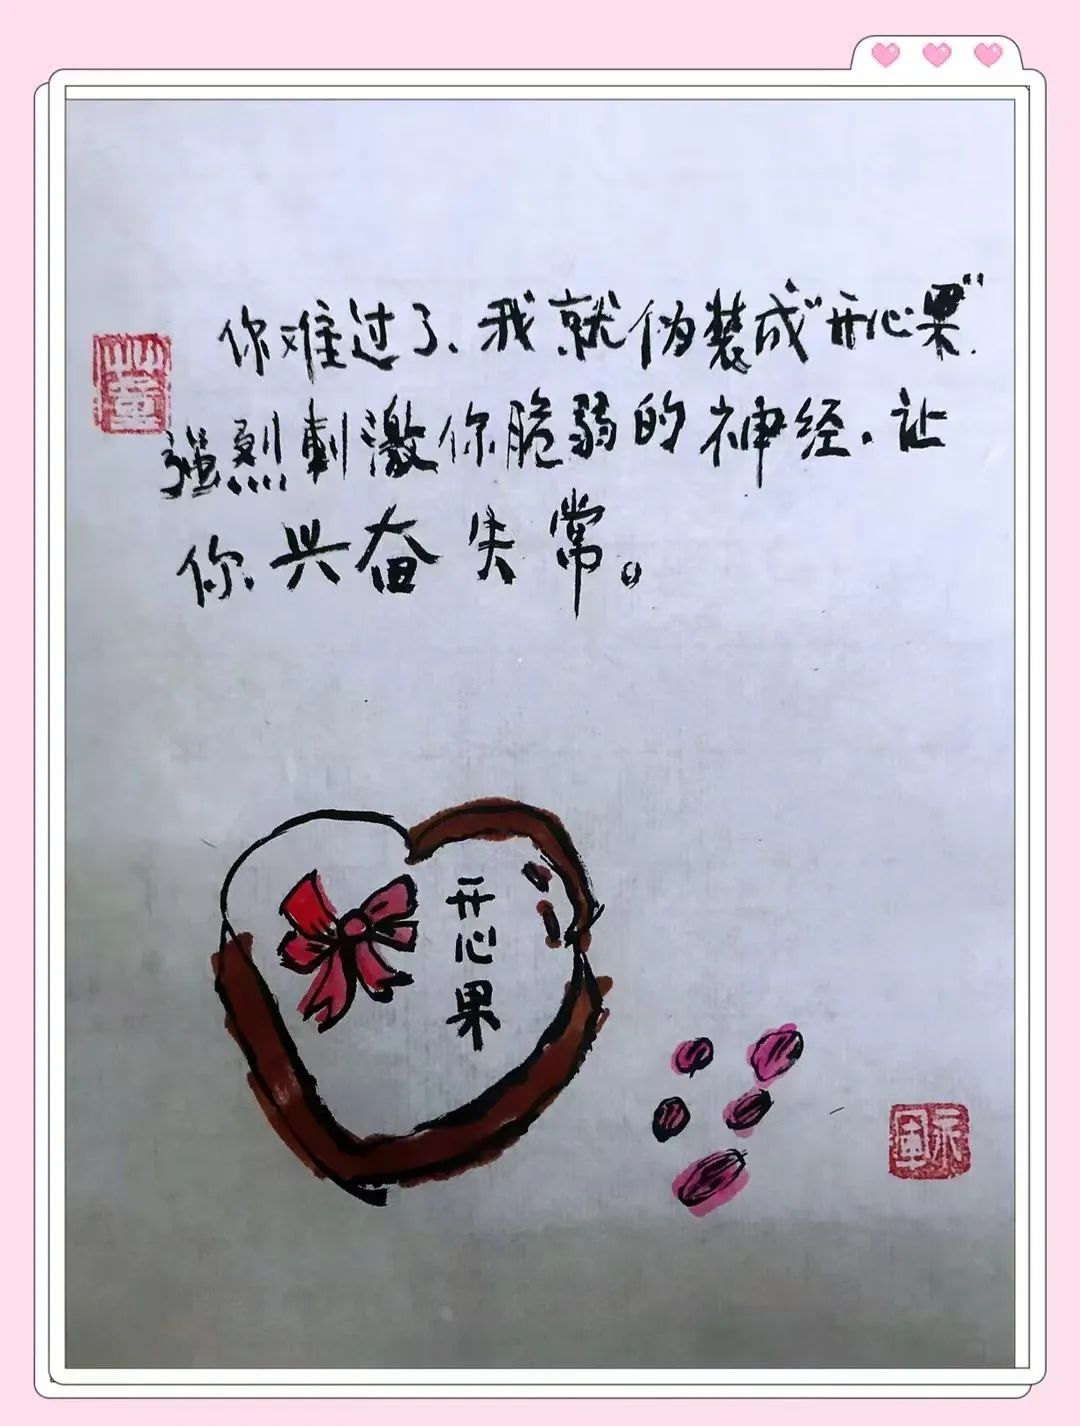 你难过了、我就伪装成“开心果”.
强烈刺激你脆弱的神经.让
你兴奋失常。
开心果